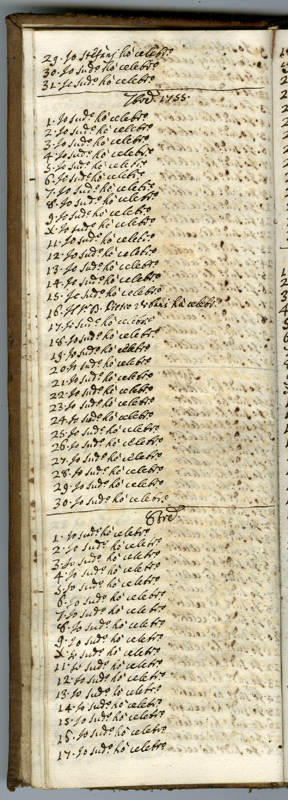 29. Io Stefani hò celebro
30. Io sud.º hò celebro
31. Io sud.º hò celebro
7bre 1755.
1. Io sud.º hò celebro
2. Io sud.º hò celebro
3. Io sud.º hò celebro
4. Io sud.º hò celebro
5. Io sud.º hò celebro
6. Io sud.º hò celebro
7. Io sud.º hò celebro
8. Io sud.º hò celebro
9. Io sud.º hò celebro
X. Io sud.º hò celebro
11. Io sud.º hò celebro
12. Io sud.º hò celebro
13. Io sud.º hò celebro
14. Io sud.º hò celebro
15. Io sud.º hò celebro
16. Io P. D. Pietro Stefani hò celebr.
17. Io sud.º hò celebro
18. Io sud.º hò celebro
19. Io sud.º hò celebro
20. Io sud.º hò celebro
21. Io sud.º hò celebro
22. Io sud.º hò celebro
23. Io sud.º hò celebro
24. Io sud.º hò celebro
25. Io sud.º hò celebro
26. Io sud.º hò celebro
27. Io sud.º hò celebro
28. Io sud.º hò celebro
29. Io sud.º hò celebro
30. Io sud.º hò celebro
8bre
1. Io sud.º hò celebro
2. Io sud.º hò celebro
3. Io sud.º hò celebro
4. Io sud.º hò celebro
5. Io sud.º hò celebro
6. Io sud.º hò celebro
7. Io sud.º hò celebro
8. Io sud.º hò celebro
9. Io sud.º hò celebro
X. Io sud.º hò celebro
11. Io sud.º hò celebro
12. Io sud.º hò celebro
13. Io sud.º hò celebro
14. Io sud.º hò celebro
15. Io sud.º hò celebro
16. Io sud.º hò celebro
17. Io sud.º hò celebro